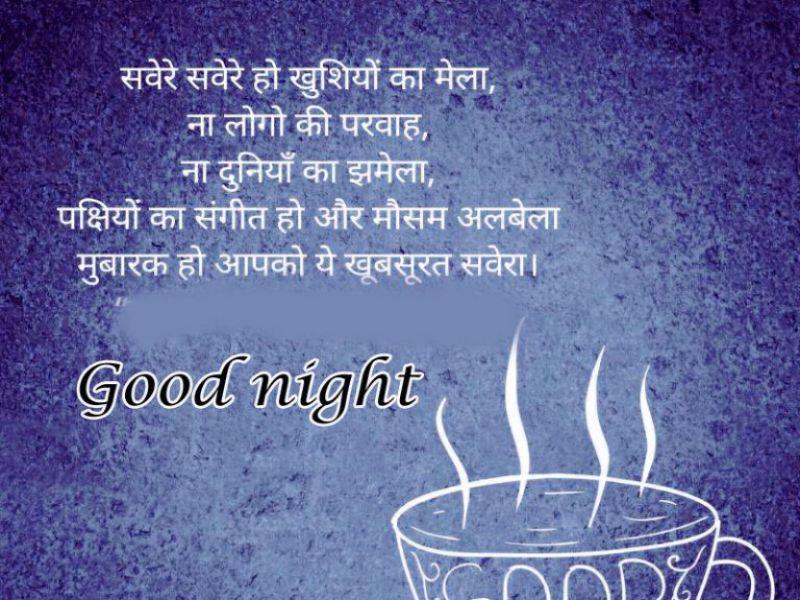 सवेरे सवेरे हो खुशियों का मेला,
ना लोगो की परवाह,
ना दुनियाँ का झमेला,
पक्षियों का संगीत हो और मौसम अलबेला
मुबारक हो आपको ये खूबसूरत सवेरा।
Good night
GOOD